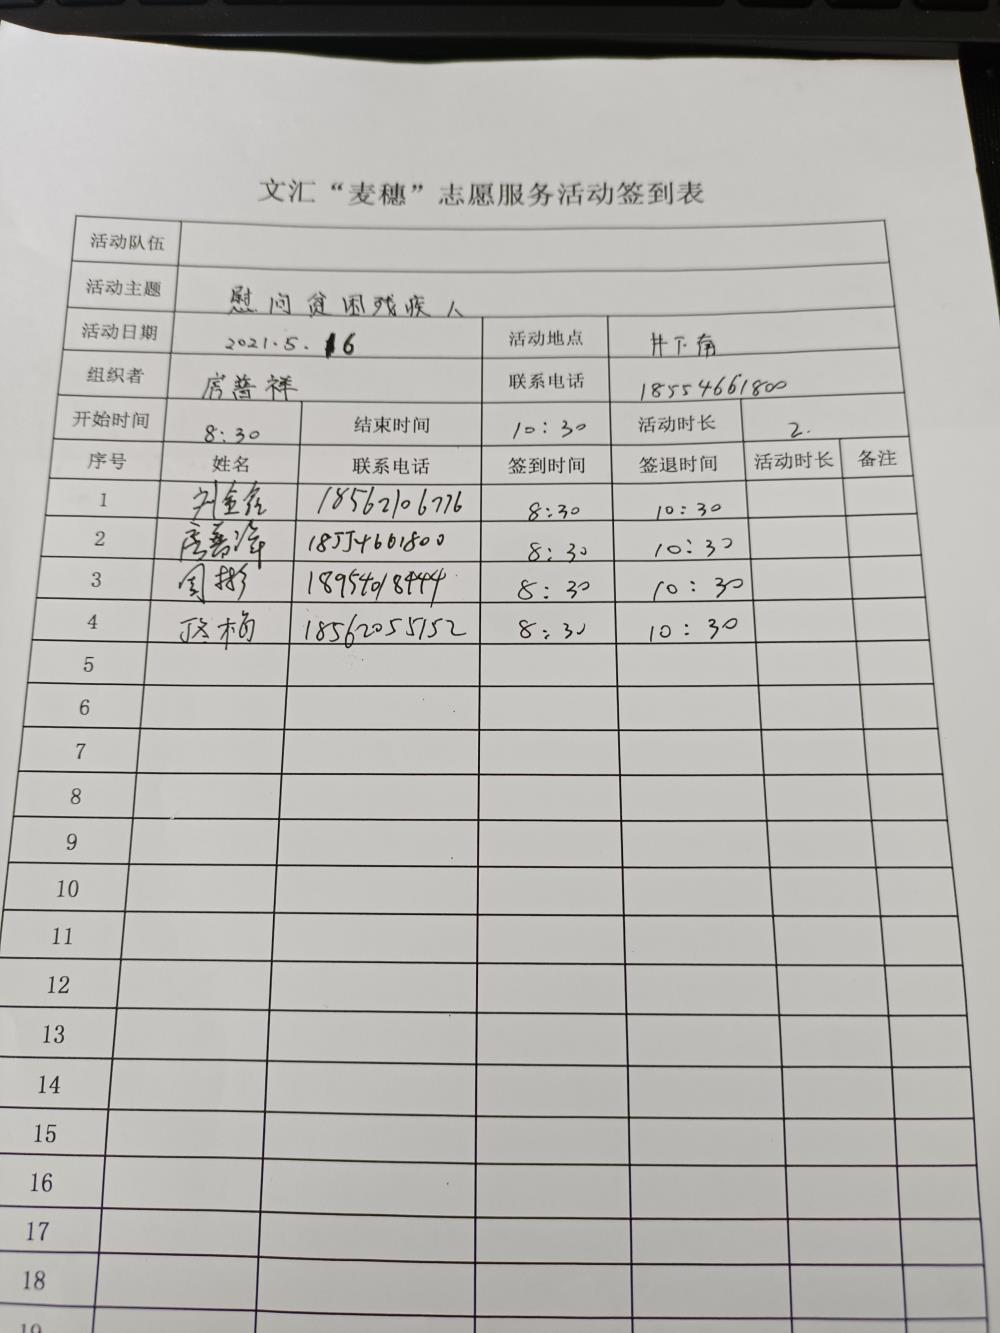 文汇“麦穗”志愿服务活动签到表
活动队伍
活动主题 慰问贫困残疾人
活动日期 2021.5.16 活动地点 井下南
组织者 房普祥 联系电话 18554661800
开始时间 8:30 结束时间 10:30 活动时长 2.
序号 姓名 联系电话 签到时间 签退时间 活动时长 备注
1 18562106776 8:30 10:30
2 18554661800 8:30 10:30
3 周彬 18954018444 8:30 10:30
4 18562055152 8:30 10:30
5
6
7
8
9
10
11
12
13
14
15
16
17
18
19